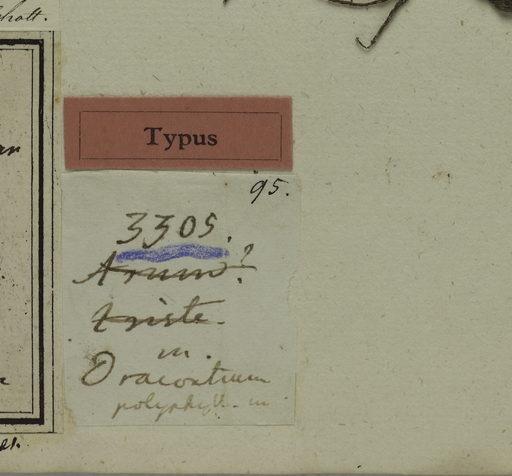 Typus
95.
3305.
Arum?
triste.
m.
Dracontium
polyphyll. m